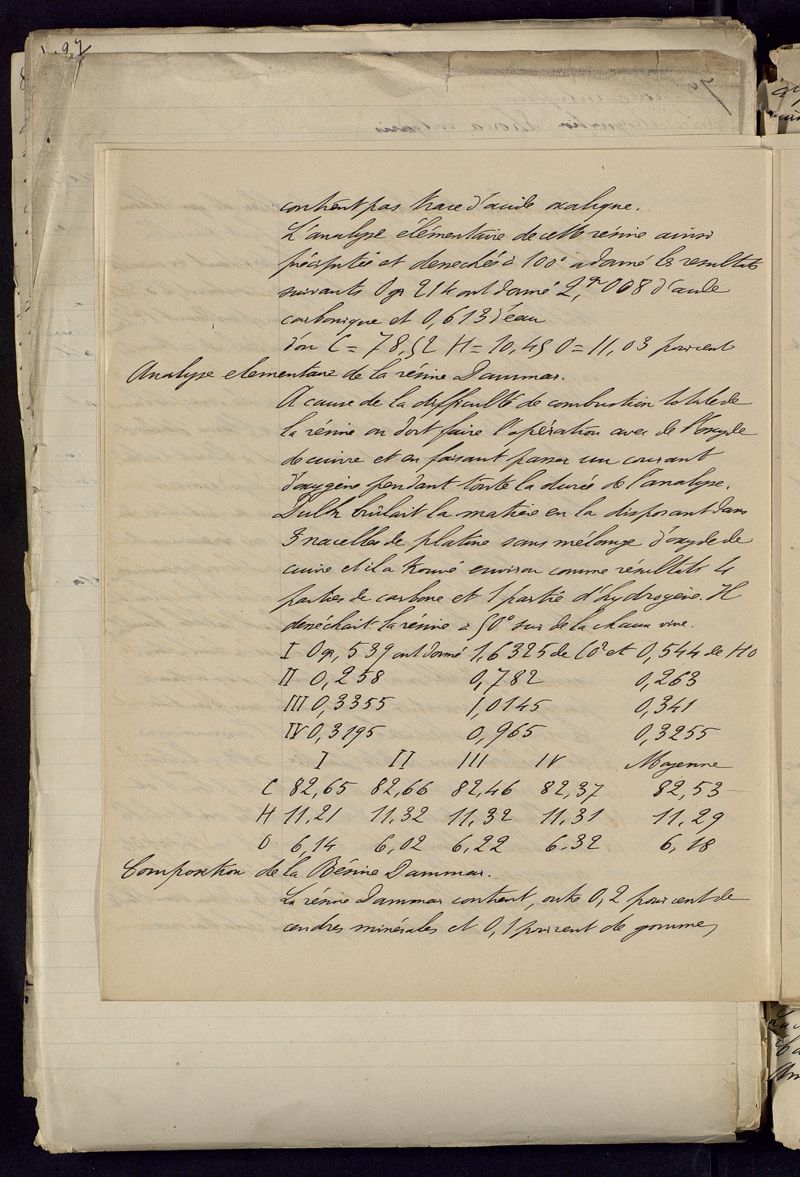 contient pas trace d'acide oxalique.
L'analyse élémentaire de cette résine ainsi
précipitée et desséchée à 100° a donné les resultats
suivants 0gr 214 ont donné 2,gr 008 d'acide
carbonique et 0,613 d'eau
d'ou C = 78,52 H = 10,45 O = 11,03 pour cent
Analyse elementaire de la résine Dammar.
A cause de la difficulté de combustion totale de
la résine on doit faire l'opération avec de l'oxyde
de cuivre et en faisant passer un courant
d'oxygène pendant toute la durée de l'analyse.
Dulk brûlait la matière en la disposant dans
3 nacelles de platine sans mélange d'oxyde de
cuivre et il a trouvé environ comme résultats 4
parties de carbone et 1 partie d'hydrogène. Il
desséchait la résine à 50° sur de la chaux vive.
I 0gr,539 ont donné 1,6325 de CO² et 0,544 de HO
II 0,258 0,782 0,263
III 0,3355 1,0145 0,341
IV 0,3195 0,965 0,3255
I II III IV Moyenne
C 82,65 82,66 82,46 82,37 82,53
H 11,21 11,32 11,32 11,31 11,29
O 6,14 6,02 6,22 6.32 6,18
Composition de la Résine Dammar.
La résine Dammar contient, outre 0,2 pour cent de
cendres minérales et 0,1 pour cent de gomme,